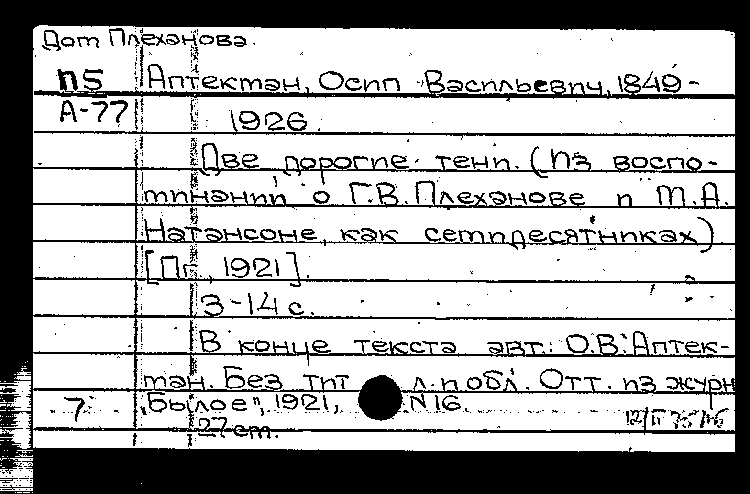 Дом Плеханова.
П5 Аптекман, Осип Васильевич, 1849-
А-77 1926.
Две дорогие тени. (Из воспо-
минаний о Г.В. Плеханове и М.А.
Натансоне, как семидесятниках)
[Пг., 1921].
3-14 с.
В конце текста авт.: О.В. Аптек-
ман. Без тит л. и обл. Отт. из журн
7 "Былое", 1921, N 16.
27 cm.